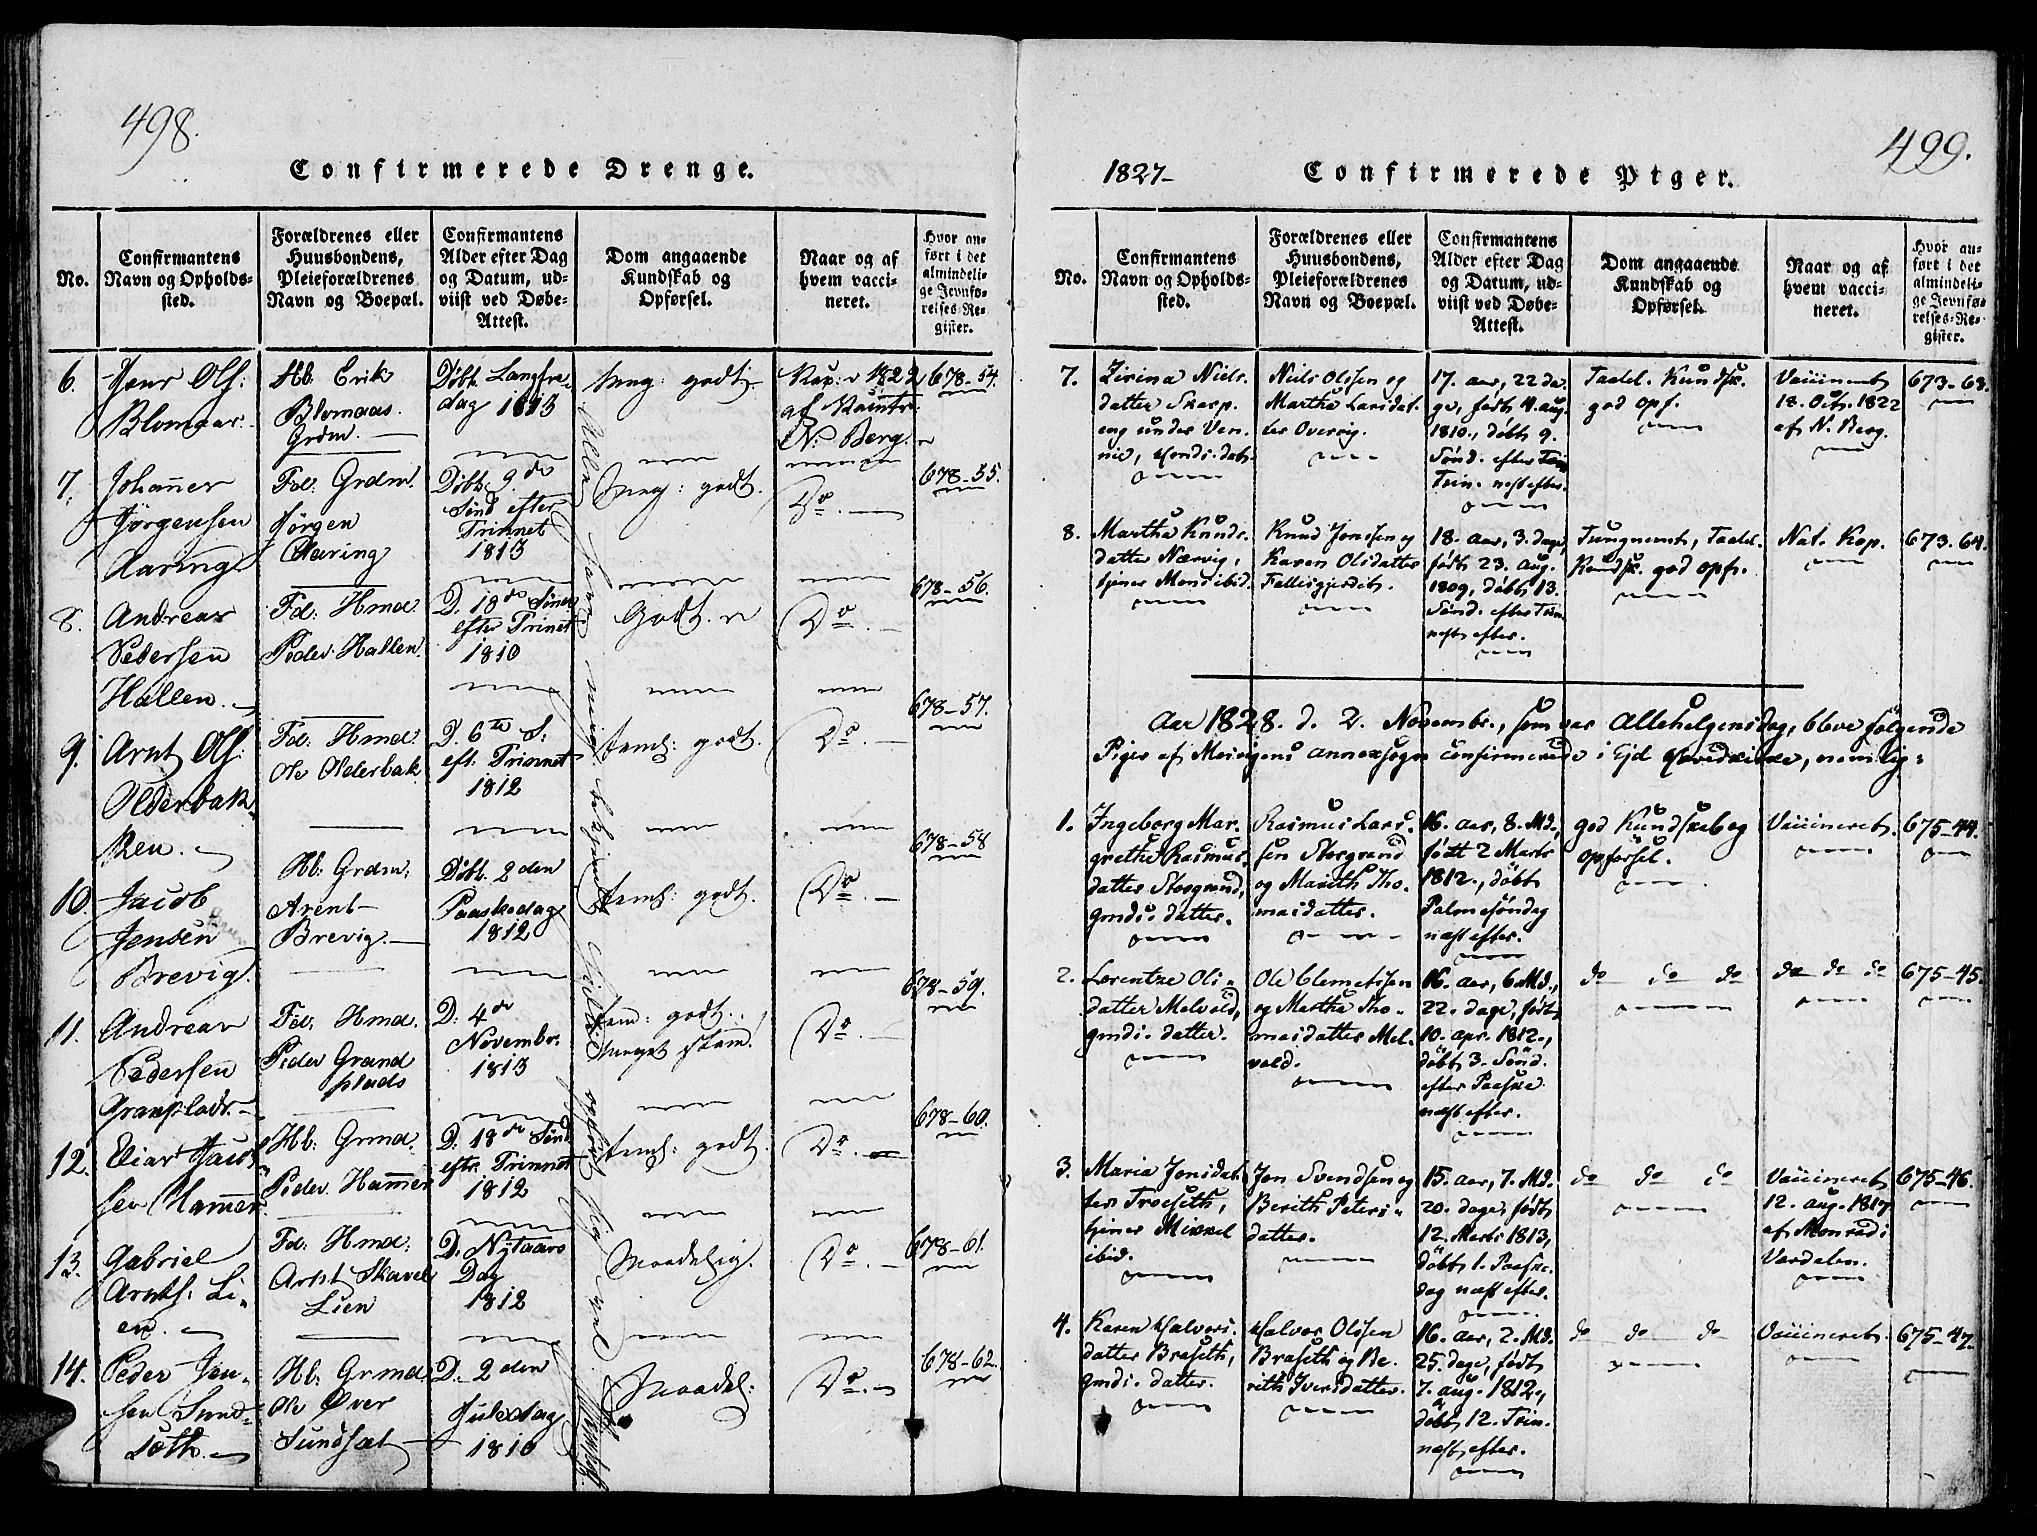 498.
Confirmerede Drenge.
No.
Confirmantens
Navn og Opholds-
sted.
Forældrenes eller
Huusbondens,
Pleieforældrenes
Navn og Boepæl.
Confirmantens
Alder efter Dag
og Datum, ud-
viist ved Døbe-
Attest.
Dom angaaende
Kundskab og
Opførsel.
Naar og af
hvem vacci-
neret.
Hvor an-
ført i det
almindeli-
ge Jevnfø-
relses-Re-
gister.
6.
Jens Ols:
Blomaas.
Hb. Erik
Blomaas.
Grdm.
Døbt Langfre-
dag 1813
Meg: godt
1822
N: Berg.
678-54.
7.
Johannes
Jörgensen
Aaring
Fd: Grdm.
Jörgen
Aaring
Döbt 9de
Sönd efter
Trinnet
1813
Meg: godt.
Do.
678-55.
8.
Andreas
Pedersen
Hallen.
Fd: Hmd.
Peder Hallen.
D. 18de Sönd
efter Trinet
1810
Godt.
Do.
678-56.
9.
Arnt Ols:
Olderbak-
ken.
Fd: Hmd.
Ole Olderbak.
D. 6te S:
eft. Trinnet
1812
teml: godt.
Do.
678-57.
10.
Jacob
Jensen
Brevig.
Hb: Grdm:
Arent
Brevig.
Døbt. 2den
Paaskedag
1812
teml: godt.
Do.
678-58
11.
Andreas
Pedersen
Granplads.
Fd: Hmd.
Peder Grand
plads
D: 4de
Novembr.
1813
tem: godt.
Do.
678-59.
12.
Elias Jacob
sen Hammer
Hb: Grmd.
Peder Hammer
D: 18de Sönd
eftr. Trinnet
1812
teml: godt.
Do.
678-60.
13.
Gabriel
Arnts: Li-
en.
Fd: Hmd:
Arnt Skavel
Lien
D. Nytaars
Dag
1812
Maadelig.
Do.
678-61.
14.
Peder Jen-
sen Sund-
sæth.
Hb: Grmd.
Ole Øver
Sundsæt
D. 2den
Juledag
1810
Maadel:
Do.
678-62.
1827-
Confirmerede Piger.
499.
No.
Confirmantens
Navn og Opholds-
sted.
Forældrenes eller
Huusbondens,
Pleieforældrenes
Navn og Boepæl.
Confirmantens
Alder efter Dag
og Datum, ud-
viist ved Døbe-
Attest.
Dom angaaende
Kundskab og
Opførsel.
Naar og af
hvem vacci-
neret.
Hvor an-
ført i det
almindeli-
ge Jevnfø-
relses-Re-
gister.
7.
Zirina Niels-
datter Skarp-
eng under Ven-
nie,
Niels Olssen og
Martha Larsdat-
ter Overvig.
17. aar, 22 da-
ge, født 4. aug.
1810., døbt 9.
Sønd. efter Trin.
Trin. næst efter.
Taalel. Kundsk.
god opf.
Vaccineret
18. Octr. 1822
af N. Berg.
673-63.
8.
Martha Knuds-
datter Nærvig,
tjener Mons ibid.
Knud Jonssen og
Karen Olsdatter
Fallisgjerdet.
18. aar, 3. dage,
født 23. aug.
1809, døbt 13.
Sønd. efter Trin.
næst efter.
Tungnemt, Taalel.
Kundsk. god opfr.
Nat. Kop.
673-64.
Aar 1828. d. 2. Novembr., som var Allehelgensdag, bleve følgende
Piger af Mosvigens annexsogn confirmerede i Ytterø Hovedkirke, nemlig:
1.
Ingeborg Mar-
gretha Rasmus-
datter Storgrand,
gmds. datter.
Rasmus Lars-
sen Storgrand
og Marith Tho-
masdatter.
16. aar, 8. Md.,
født 2 Marts
1812., døbt
Palmesøndag
næst efter.
god Kundskab og
opførsel.
Vaccineret.
675-44.
2.
Lorentze Ols-
datter Melvold,
gmds. datter.
Ole Clemetssen
og Martha Tho-
masdatter Mel-
vold.
16. aar, 6. Md.,
22. dage, født
10. apr. 1812.,
døbt 3. Sønd.
efter Paaske
næst efter.
do do do
do do do
675-45.
3.
Maria Jonsdat-
ter Troeseth,
tjener Mikkel
ibid.
Jon Svendsen og
Berith Peters-
datter.
15. aar, 7. Md.
20. dage, født
12. Marts 1813,
døbt 1. Paaske-
dag næst efter.
do do do
Vaccineret
12. aug. 1817
af Monrad i
Værdalen.
675-46.
4.
Karen Halvors-
datter Braseth,
gmds. datter.
Halvor Olssen
Braseth og Be-
rith Iversdatter.
16. aar, 2. Md.
25. dage, født
7. aug. 1812.,
døbt 12. Trin.
næst efter.
do do do
Vaccineret.
675-47.